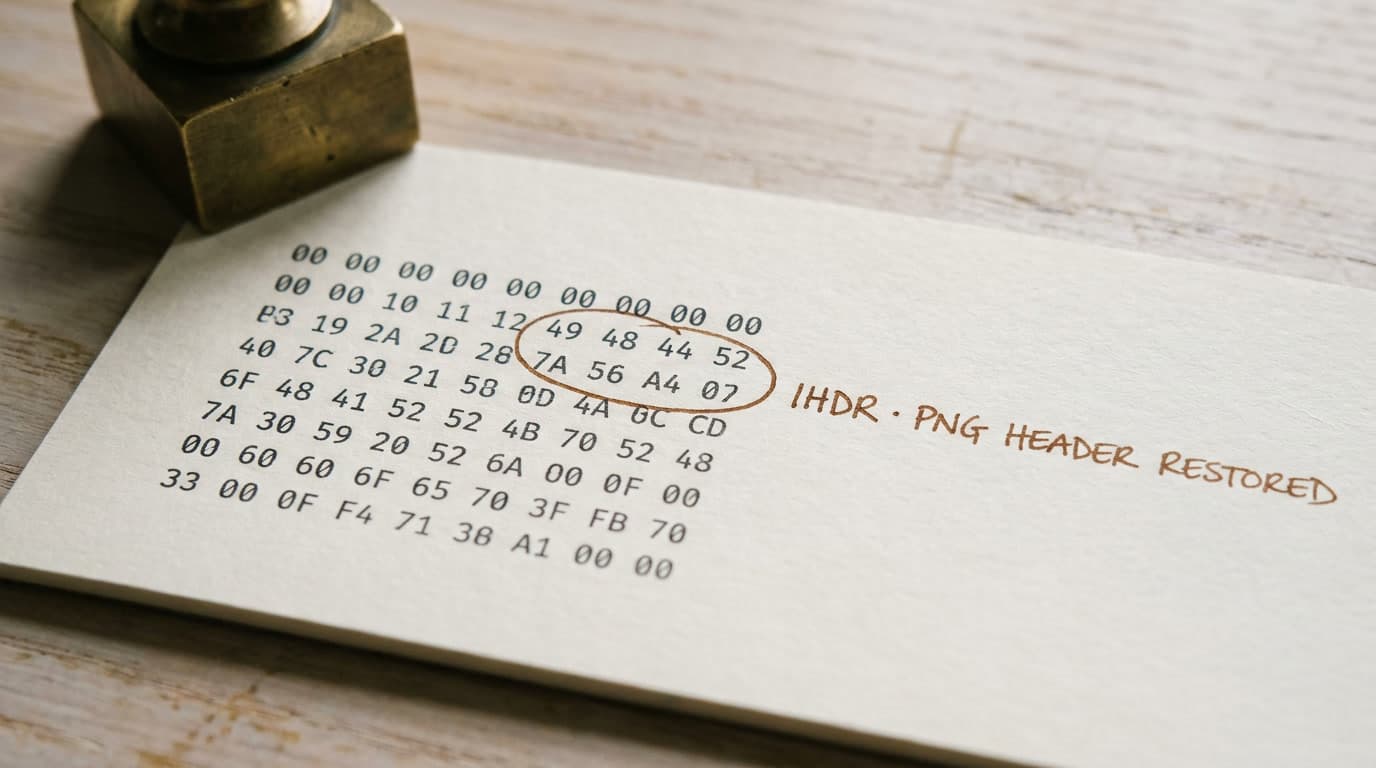 00 00 00 00 00 00 00 00 00
00 00 10 11 12 49 48 44 52
19 2A 2D 28 7A 56 A4 07
40 7C 30 21 58 0D 4A 0C CD
6F 48 41 52 52 4B 70 52 48
7A 30 59 20 52 6A 00 0F 00
00 60 60 6F 65 70 3F FB 70
33 00 0F F4 71 38 A1 00 00
IHDR · PNG HEADER RESTORED